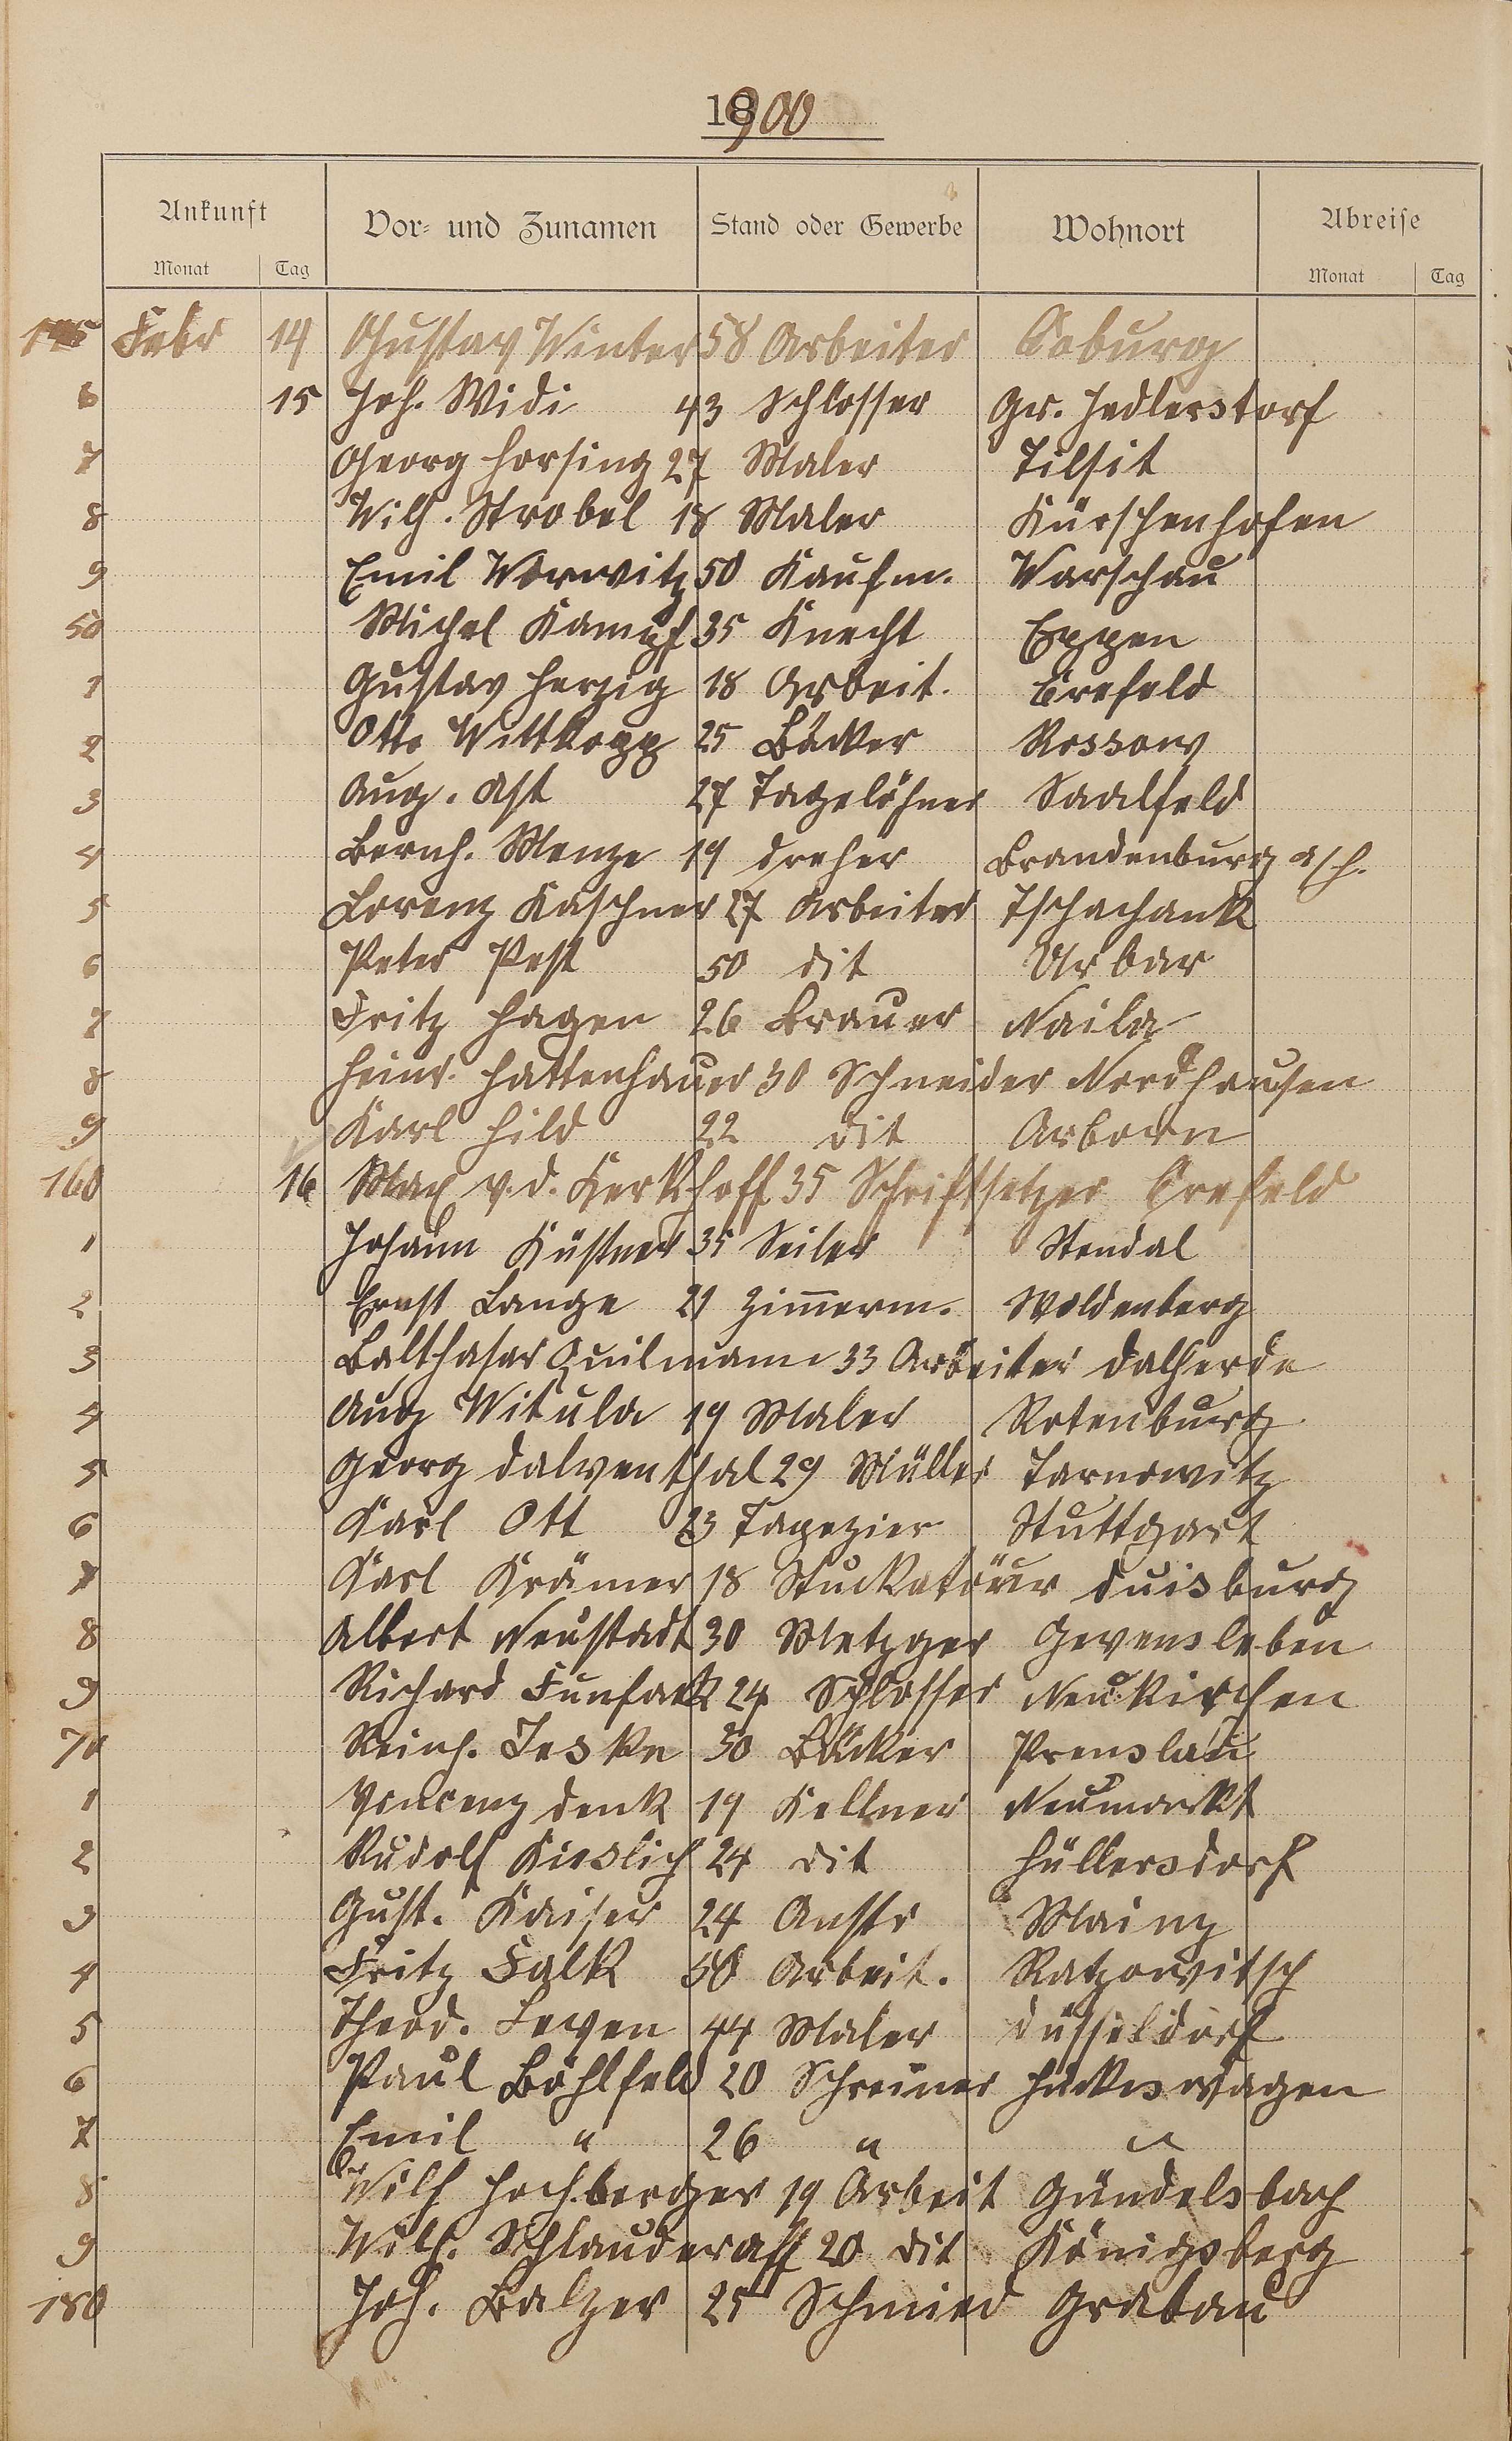 1900
Ankunft Vor- und Zunamen Stand oder Gewerbe Wohnort Abreise
Monat Tag Monat Tag
145 Febr 14 Gustav Winter 58 Arbeiter Coburg
6 15 Joh. Widi 43 Schlosser Gr. Jedlerstorf
7 Georg Horsing 27 Maler Tilsit
8 Wilh. Strobel 18 Maler Kürschenhofen
9 Emil Worwitz 50 Kaufm. Warschau
50 Michel Kampf 35 Knecht Eppen
1 Gustav Herzig 18 Arbeit. Crefeld
2 Otto Wittkopp 25 Bäcker Rossow
3 Aug. Ast 27 Tagelöhner Saalfeld
4 Bernh. Menze 19 Dreher Brandenburg a/H.
5 Lorenz Kaschner 27 Arbeiter Tschachank
6 Peter Pest 50 dit Urbar
7 Fritz Hagen 26 Brauer Naila
8 Heinr. Hattenhauer 30 Schneider Nordhausen
9 Karl Hild 22 dit Arborn
160 16 Max v. d. Kerkhoff 35 Schriftsetzer Crefeld
1 Johann Küstner 35 Seiler Stendal
2 Ernst Lange 21 Zimmerm. Woldenberg
3 Balthasar Quilmann 33 Arbeiter Dalherda
4 Aug Witula 19 Maler Rotenburg
5 Georg Dalventhal 29 Müller Tarnowitz
6 Karl Ott 23 Tapezier Stuttgart
7 Karl Krämer 18 Stuckatöur Duisburg
8 Albert Neustadt 30 Metzger Gevensleben
9 Richard Funfack 24 Schlosser Neukirchen
70 Reinh. Jeske 30 Bäcker Prenslau
1 Vincenz Denk 19 Kellner Neumarkt
2 Rudolf Kieslich 24 dit Hüllersdorf
3 Gust. Kaiser 24 Anstr Mainz
4 Fritz Falk 50 Arbeit. Ratzowitsch
5 Theod. Leven 44 Maler Düsseldorf
6 Paul Böhlfeld 20 Schreiner Hückeswagen
7 Emil " 26 " "
8 Wilh Hochberger 19 Arbeit Gündelsbach
9 Wilh. Schlauderaff 20 dit Königsberg
180 Joh. Balzer 25 Schmied Grabau